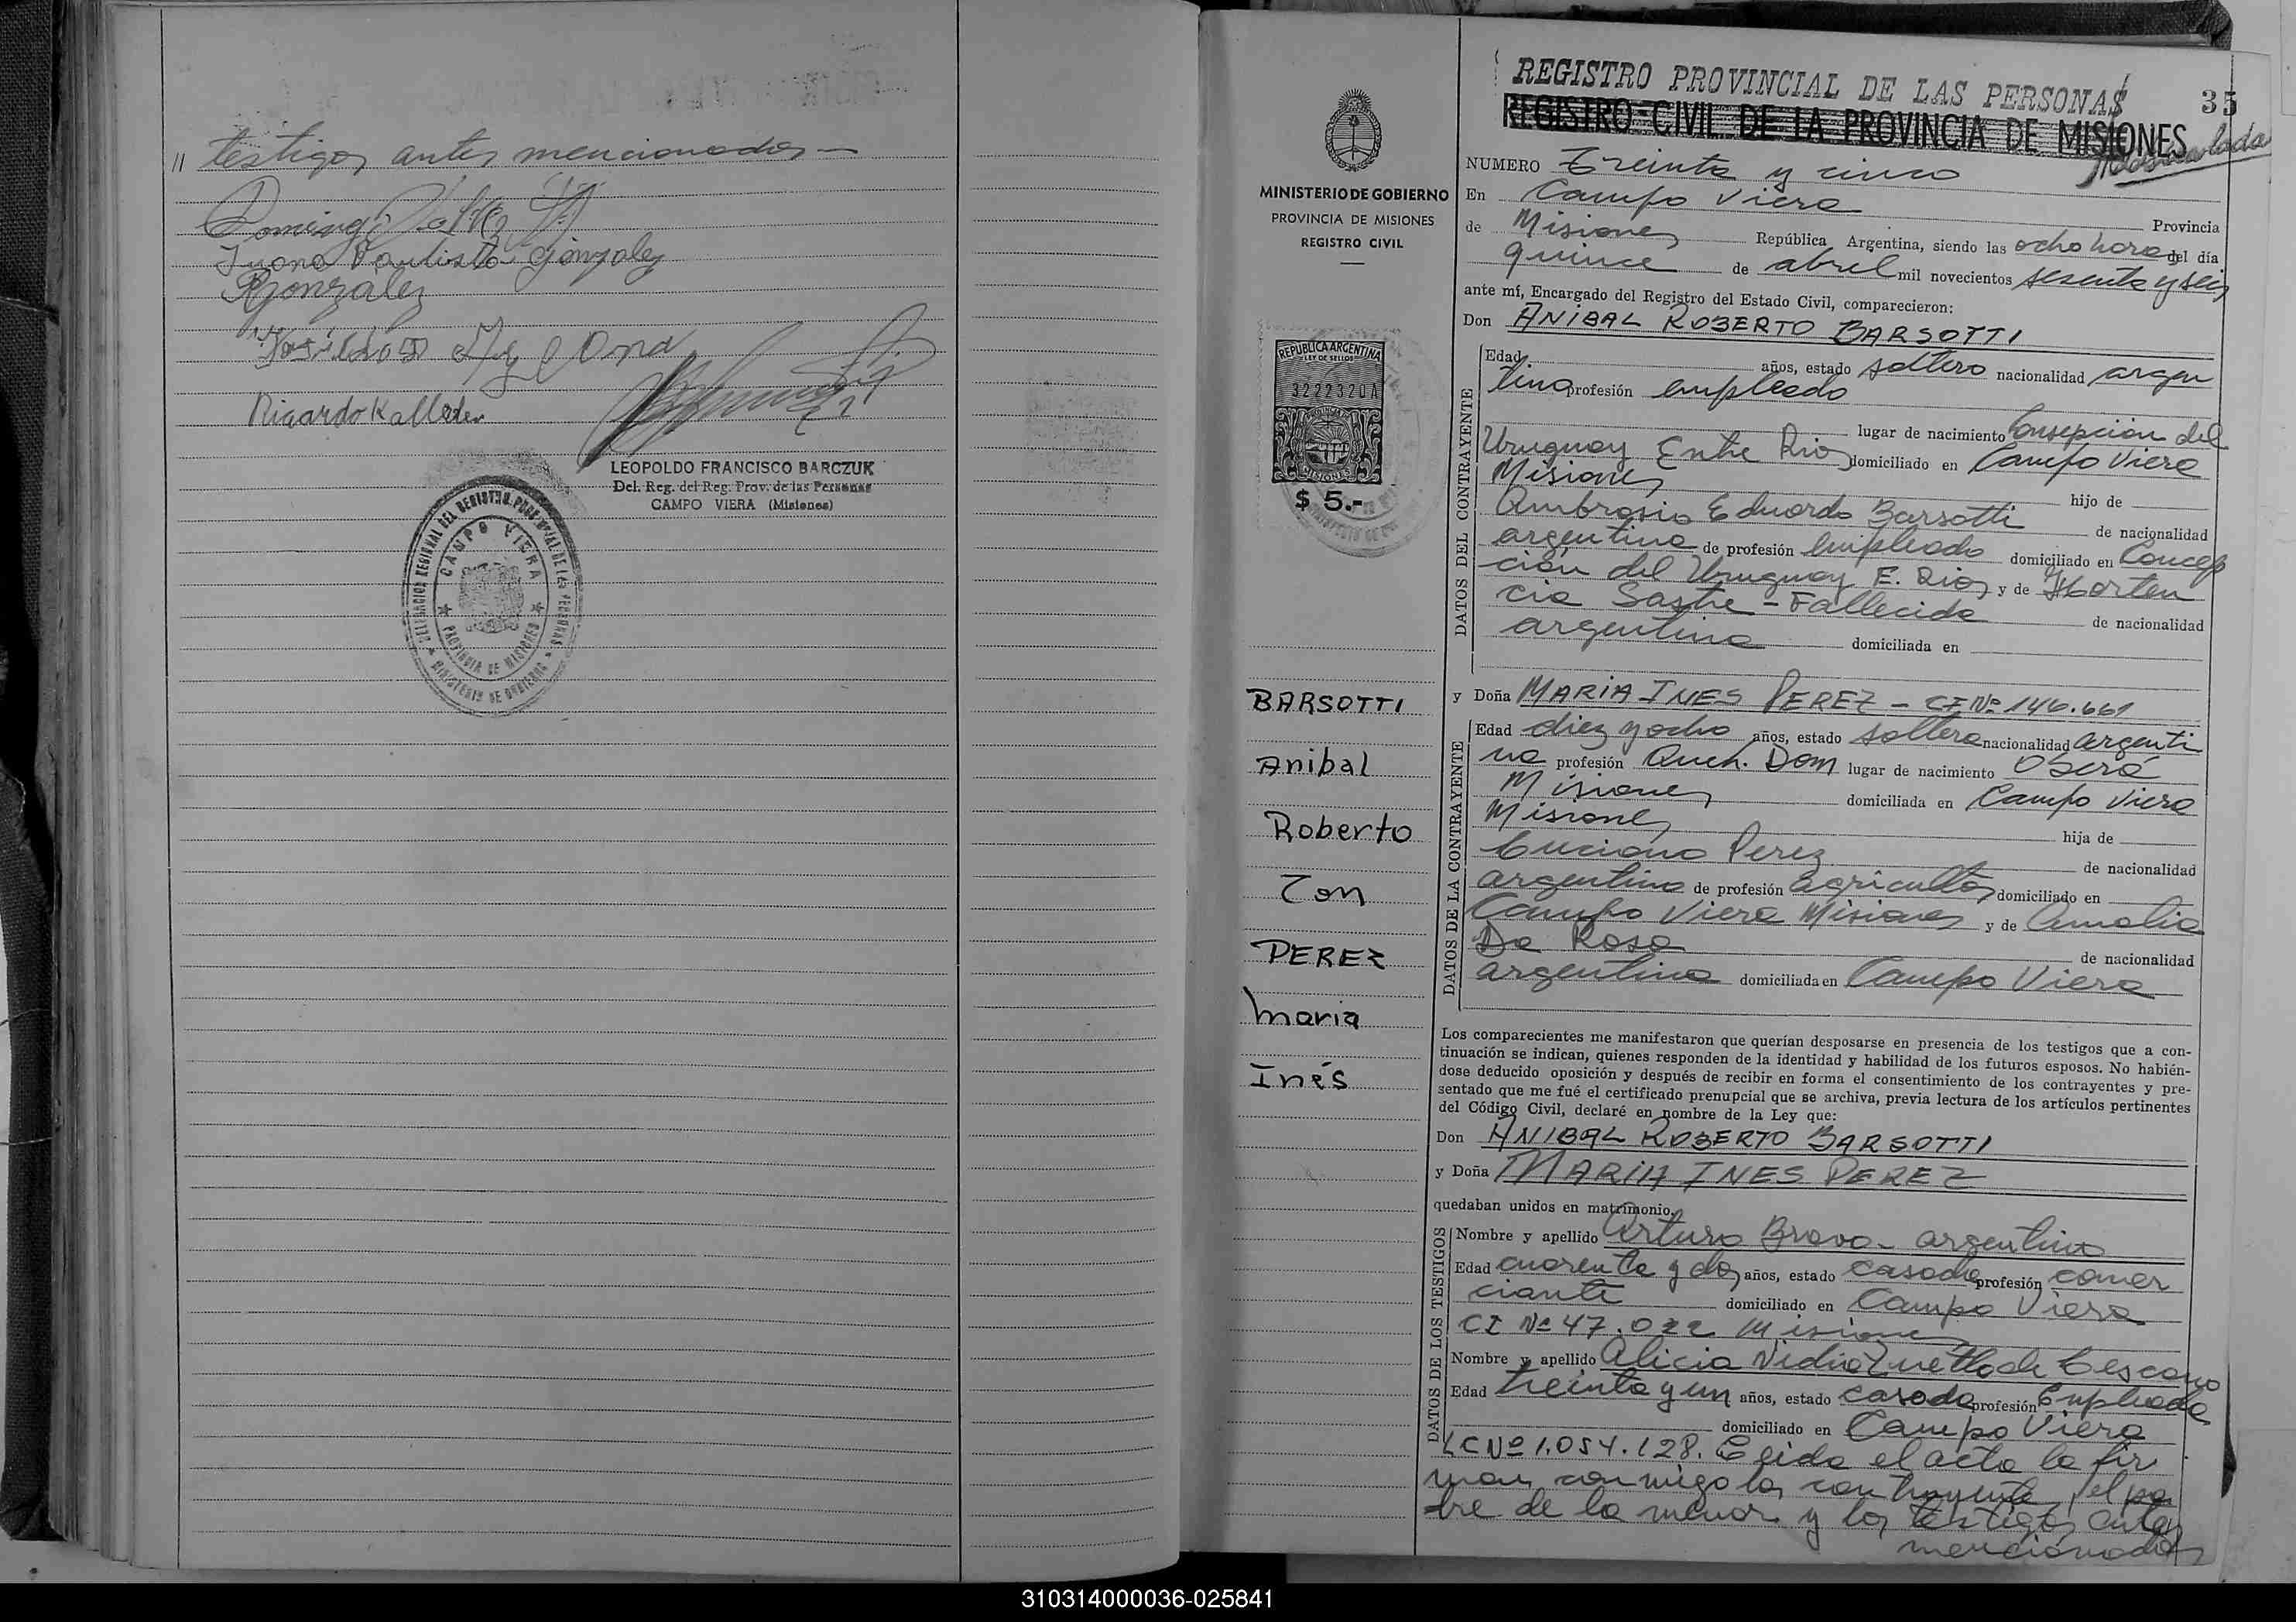 // testigos antes mencionados -
Juana Bautista Gonzalez
RGonzalez
Ricardo Kalleder
LEOPOLDO FRANCISCO BARCZUK
Del. Reg. del Reg. Prov. de las Personas
CAMPO VIERA (Misiones)
DELEGACION REGIONAL DEL REGISTRO PROVINCIAL DE LAS PERSONAS
CAMPO VIERA
PROVINCIA DE MISIONES
MINISTERIO DE GOBIERNO
MINISTERIO DE GOBIERNO
PROVINCIA DE MISIONES
REGISTRO CIVIL
REPUBLICA ARGENTINA
LEY DE SELLOS
3222320A
MISIONES
$ 5.-
BARSOTTI
Anibal
Roberto
Con
PEREZ
Maria
Inés
REGISTRO PROVINCIAL DE LAS PERSONAS
35
REGISTRO CIVIL DE LA PROVINCIA DE MISIONES
NUMERO Treinta y cinco
En Campo Viera
Provincia
de Misiones República Argentina, siendo las ocho horas del día
quince de abril mil novecientos sesenta y seis
ante mí, Encargado del Registro del Estado Civil, comparecieron:
Don ANIBAL ROBERTO BARSOTTI
DATOS DEL CONTRAYENTE
Edad años, estado soltero nacionalidad argen
tina profesión empleado
lugar de nacimiento Consepcion del
Uruguay Entre Rios domiciliado en Campo Viera
Misiones hijo de
Ambrosio Eduardo Barsotti de nacionalidad
argentina de profesión empleado domiciliado en Concep
ción del Uruguay E. Rios y de Horten
cia Sastre - Fallecida de nacionalidad
argentina domiciliada en
y Doña MARIA INES PEREZ - CI Nº 146.661
DATOS DE LA CONTRAYENTE
Edad diez y ocho años, estado soltera nacionalidad argenti
na profesión Queh. Dom lugar de nacimiento Oberá
Misiones domiciliada en Campo Viera
Misiones hija de
Luciano Perez de nacionalidad
argentina de profesión agricultor domiciliado en
Campo Viera Misiones y de Amalia
Da Rosa de nacionalidad
argentina domiciliada en Campo Viera
Los comparecientes me manifestaron que querían desposarse en presencia de los testigos que a con-
tinuación se indican, quienes responden de la identidad y habilidad de los futuros esposos. No habién-
dose deducido oposición y después de recibir en forma el consentimiento de los contrayentes y pre-
sentado que me fué el certificado prenupcial que se archiva, previa lectura de los artículos pertinentes
del Código Civil, declaré en nombre de la Ley que:
Don ANIBAL ROBERTO BARSOTTI
y Doña MARIA INES PEREZ
quedaban unidos en matrimonio.
DATOS DE LOS TESTIGOS
Nombre y apellido Arturo Bravo - argentino
Edad cuarenta y dos años, estado casado profesión comer
ciante domiciliado en Campo Viera
CI Nº 47.022 Misiones
Nombre y apellido Alicia de Lescano
Edad treinta y un años, estado casada profesión Empleada
domiciliado en Campo Viera
LC Nº 1.054.128. Leida el acta la fir
man conmigo los contrayentes, el pa
dre de la menor y los testigos antes
mencionados
310314000036-025841